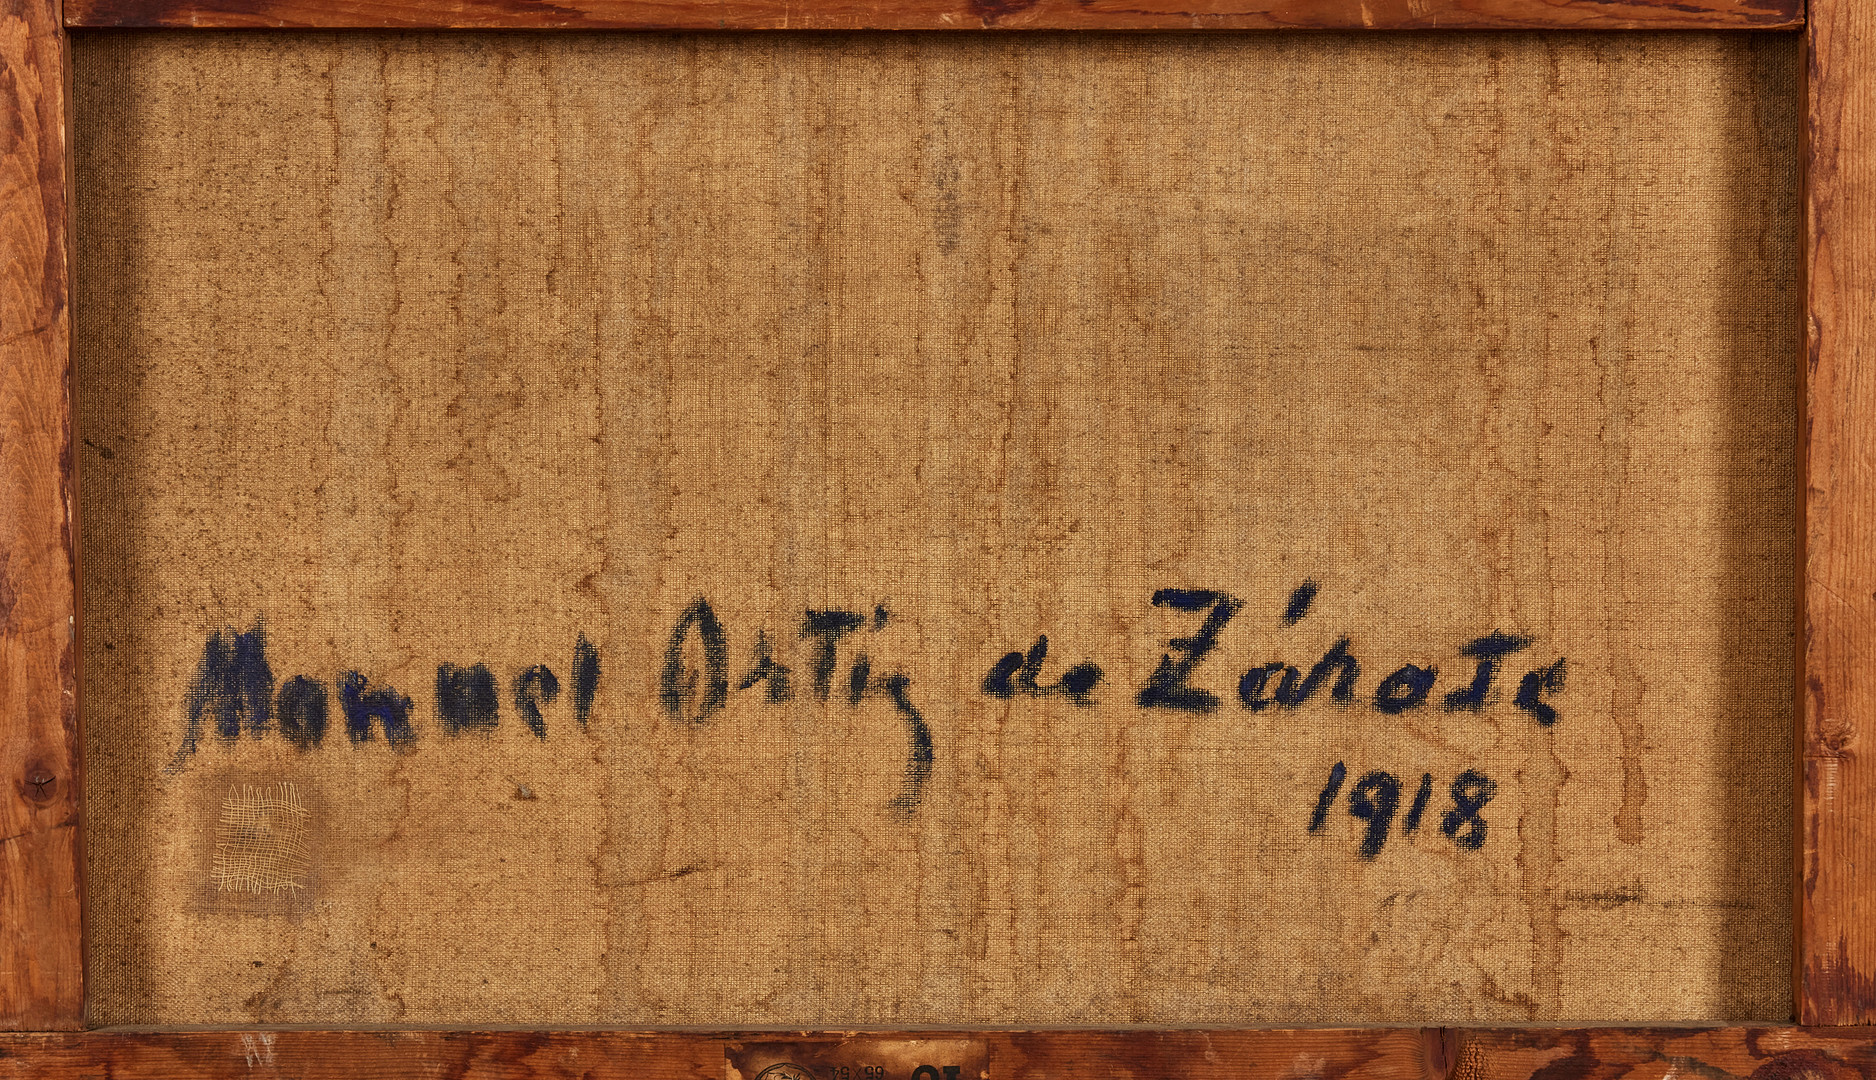 Manuel Ortiz de Zárate
1918
65 x 54
10